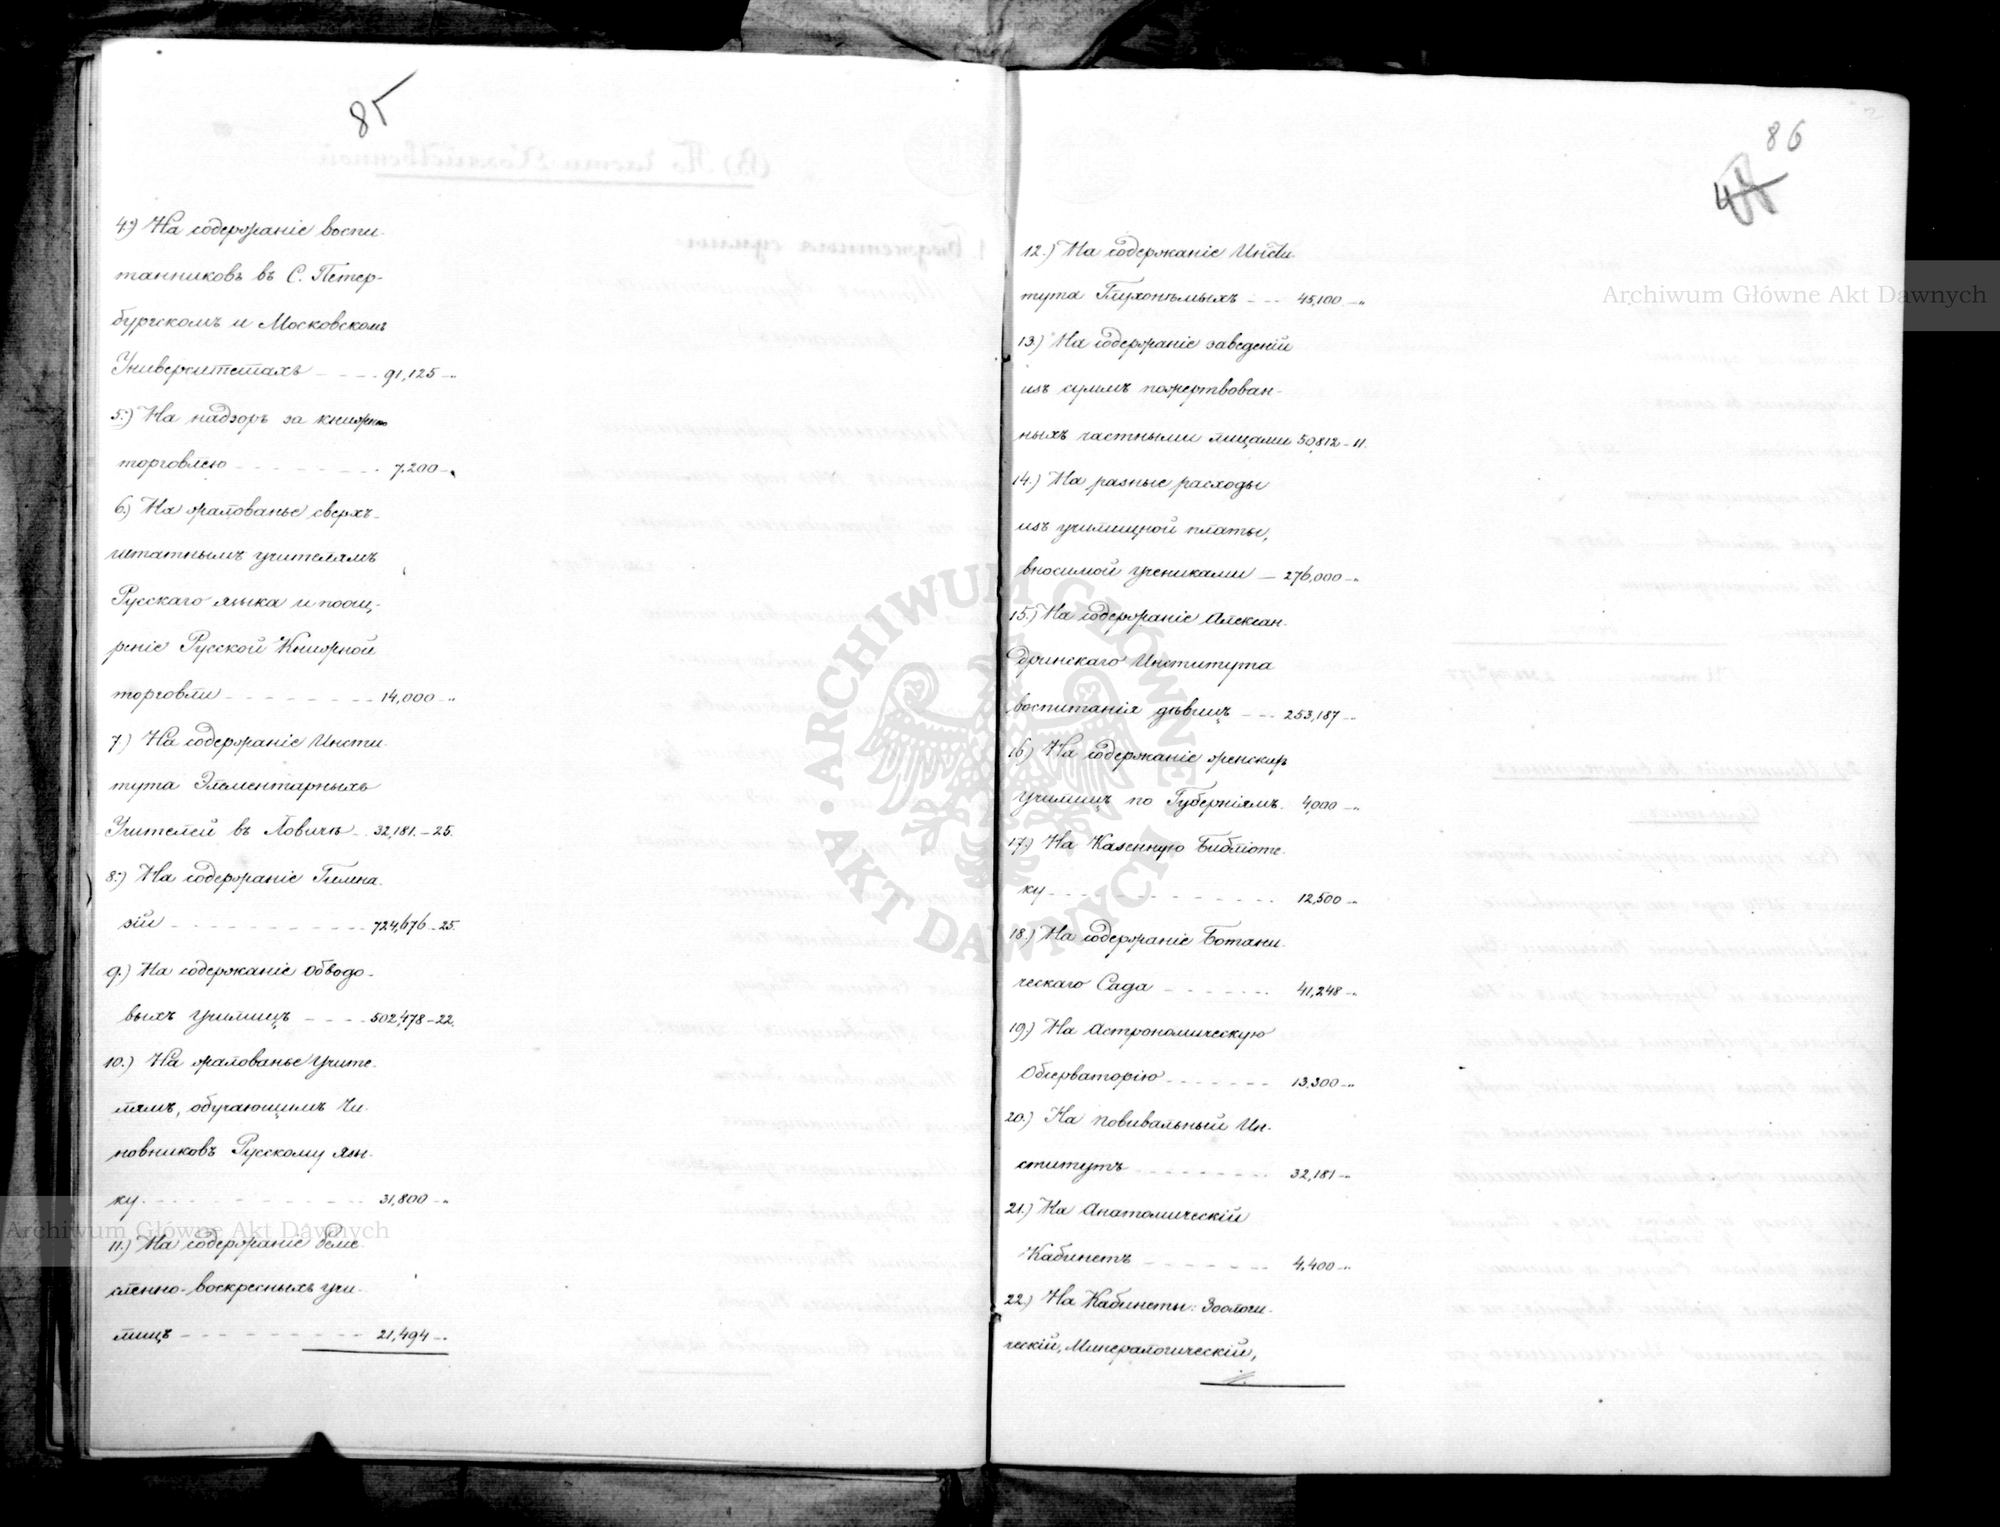 85
4.) На содержаніе воспи-
танниковъ въ С. Петер-
бургскомъ и Московскомъ
Университетахъ - - - - 91,125 -"
5.) На надзоръ за книжною
торговлею - - - - - - - - 7,200 -"
6.) На жалованье сверхъ-
штатнымъ учителямъ
Русскаго языка и поощ-
реніе Русской Книжной
торговли - - - - - - - - 14,000 -"
7.) На содержаніе Инсти-
тута Элементарныхъ
Учителей въ Ловичѣ - 32,181. - 25.
8.) На содержаніе Гимна-
зій - - - - - - - - - - - 724,676 - 25.
9.) На содержаніе Обводо-
выхъ училищъ - - - - 502,478 - 22.
10.) На жалованье учите-
лямъ, обучающимъ Чи-
новниковъ Русскому язы-
ку - - - - - - - - - - - - 31,800 -"
11.) На содержаніе Реме-
сленно-воскресныхъ учи-
лищъ - - - - - - - - - - 21,494 -"
86
12.) На содержаніе Инсти-
тута Глухонѣмыхъ - - - 45,100 -"
13.) На содержаніе заведеній
изъ суммъ пожертвован-
ныхъ частными лицами 50,812 - 11.
14.) На разные расходы
изъ училищной платы,
вносимой учениками - 276,000 -"
15.) На содержаніе Алексан-
дринскаго Института
воспитанія дѣвицъ - - - 253,187 -"
16.) На содержаніе женскихъ
училищъ по Губерніямъ 4,000 -"
17.) На Казенную Библіоте-
ку - - - - - - - - - - - - 12,500 -"
18.) На содержаніе Ботани-
ческаго Сада - - - - - - - 41,248 -"
19.) На Астрономическую
Обсерваторію - - - - - - - 13,300 -"
20.) На Повивальный Ин-
ститутъ - - - - - - - - - 32,181 -"
21.) На Анатомическій
Кабинетъ - - - - - - - - 4,400 -"
22.) На Кабинеты: Зоологи-
ческій, Минералогическій,
Archiwum Główne Akt Dawnych
Archiwum Główne Akt Dawnych
ARCHIWUM GŁÓWNE AKT DAWNYCH